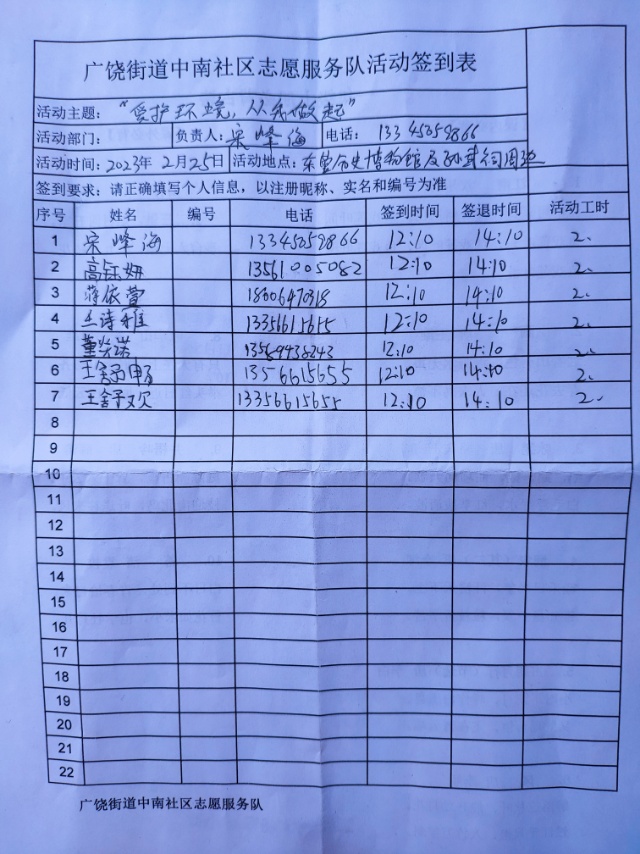 广饶街道中南社区志愿服务队活动签到表
活动主题：“爱护环境，从我做起”
活动部门： 负责人：宋峰海 电话：13345059866
活动时间：2023年2月25日 活动地点：东营历史博物馆及孙武祠周边
签到要求：请正确填写个人信息，以注册昵称、实名和编号为准
序号 姓名 编号 电话 签到时间 签退时间 活动工时
1 宋峰海 13345059866 12:10 14:10 2.
2 高钰妍 13561005082 12:10 14:10 2.
3 蒋依萱 12:10 14:10 2.
4 兰诗雅 13356615615 12:10 14:10 2.
5 董笑诺 12:10 14:10 2.
6 王舒畅 12:10 14:10 2.
7 王舒欢 13356615655 12:10 14:10 2.
8
9
10
11
12
13
14
15
16
17
18
19
20
21
22
广饶街道中南社区志愿服务队